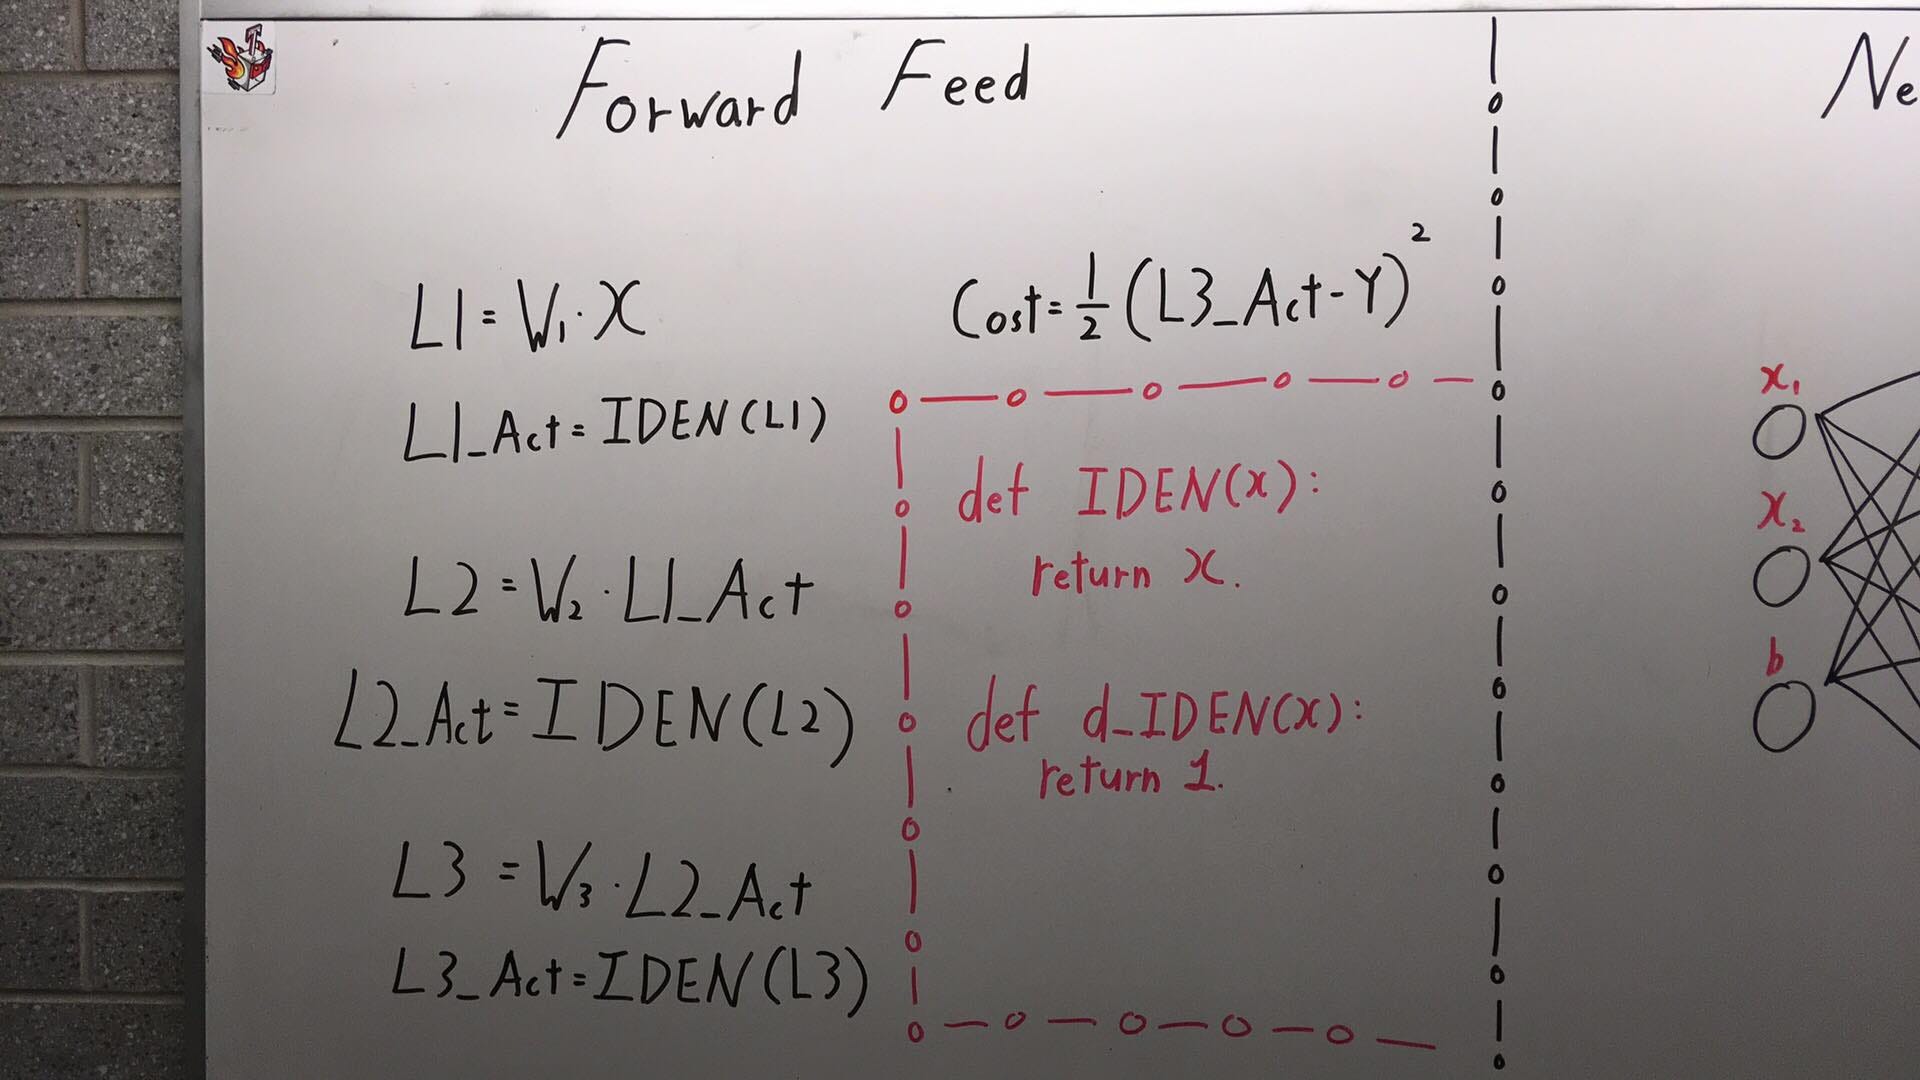 Forward Feed
L1 = W₁ · X
L1_Act = IDEN(L1)
L2 = W₂ · L1_Act
L2_Act = IDEN(L2)
L3 = W₃ · L2_Act
L3_Act = IDEN(L3)
Cost = 1/2 (L3_Act - Y)²
def IDEN(x):
return x.
def d_IDEN(x):
return 1.
Ne
x₁
x₂
b